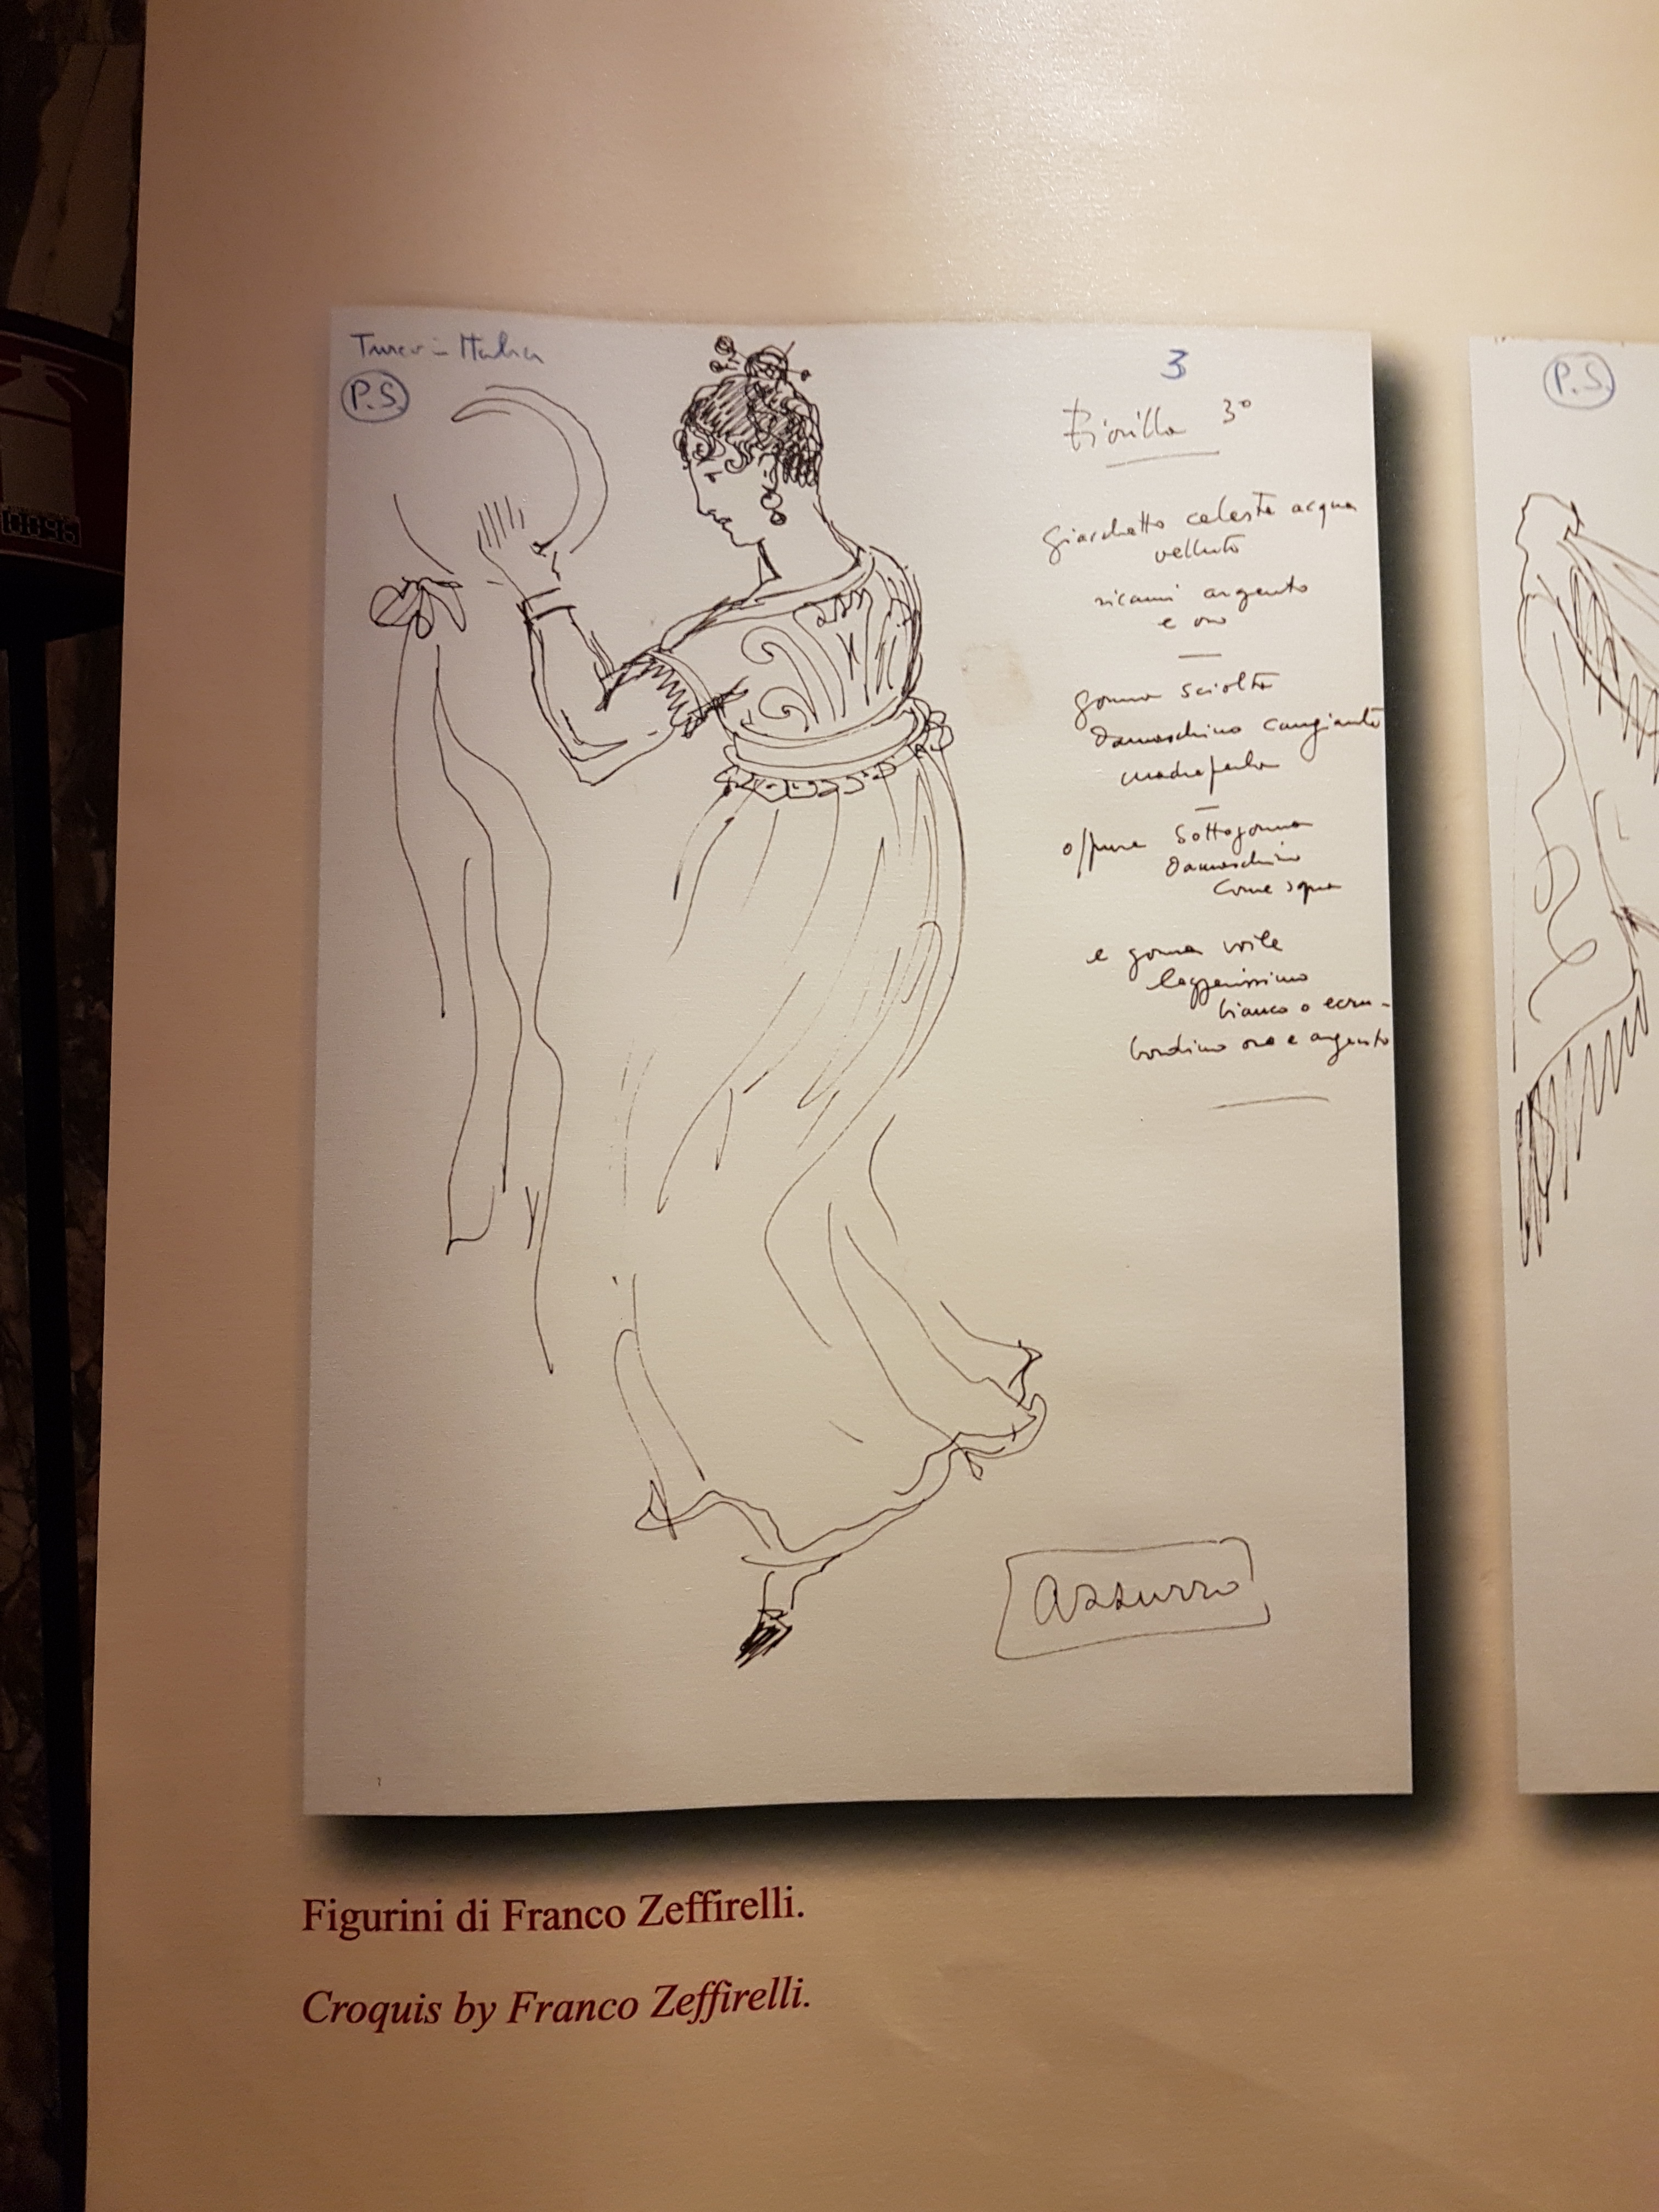 Turco in Italia
P.S.
3
Fiorilla 3º
giacchetto celeste acqua
velluto
ricami argento
e oro
gonna sciolta
damaschino cangiante
madreperla
oppure sottogonna
damaschino
come sopra
e gonna voile
leggerissimo
bianco o ecru -
bordino oro e argento
azzurro
P.S.
Figurini di Franco Zeffirelli.
Croquis by Franco Zeffirelli.